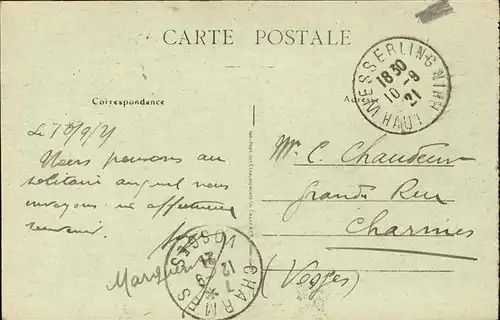 CARTE POSTALE
Correspondance
Adresse
MESSERLING HAUT RHIN
18 30
10 -9
21
Le 10/9/21
Nous pensons au
solitaire auquel nous
envoyons un affectueux
souvenir.
Marguerite
Mr C. Chaudeur
Grande Rue
Charmes
(Vosges)
CHARMES VOSGES
7
12 -9
21